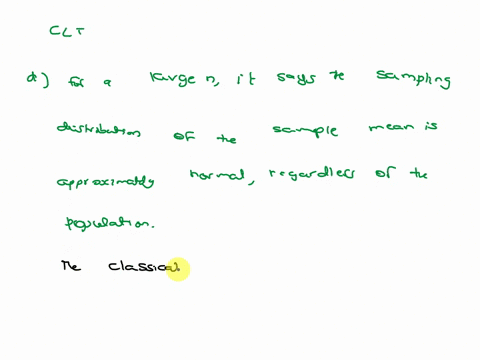 CLT
d) for a large n, it says the sampling
distribution of the sample mean is
approximately normal, regardless of the
population.
The classical